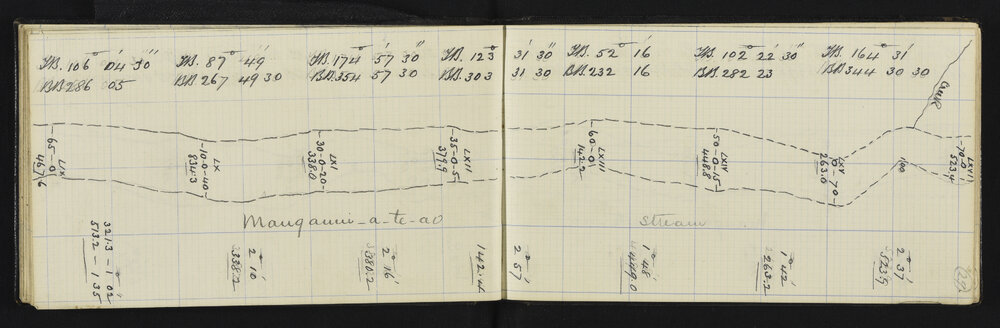 F.B. 106° 04' 30" F.B. 87° 49' F.B. 174° 57' 30" F.B. 123° 31' 30" F.B. 52° 16' F.B. 102° 22' 30" F.B. 164° 31'
B.B. 286 05 B.B. 267 49 30 B.B. 354 57 30 B.B. 303 31 30 B.B. 232 16 B.B. 282 23 B.B. 344 30 30
Creek
LIX
-65-0
467.6
LX
-10-0-40-
834.3
LXI
-30-0-20-
338.0
LXII
-35-0-5-
379.9
LXIII
-60-0
142.2
LXIV
-50-0-15-
448.8
LXV
0-70-
263.0
100
LXVI
-70-0
523.4
Manganui-a-te-ao Stream
321.3 - 1° 02'
513.2 - 1 35
2° 10'
338.2
2° 16'
380.2
142.4
2° 57'
1° 48'
449.0
1° 42'
263.2
2° 37'
523.9